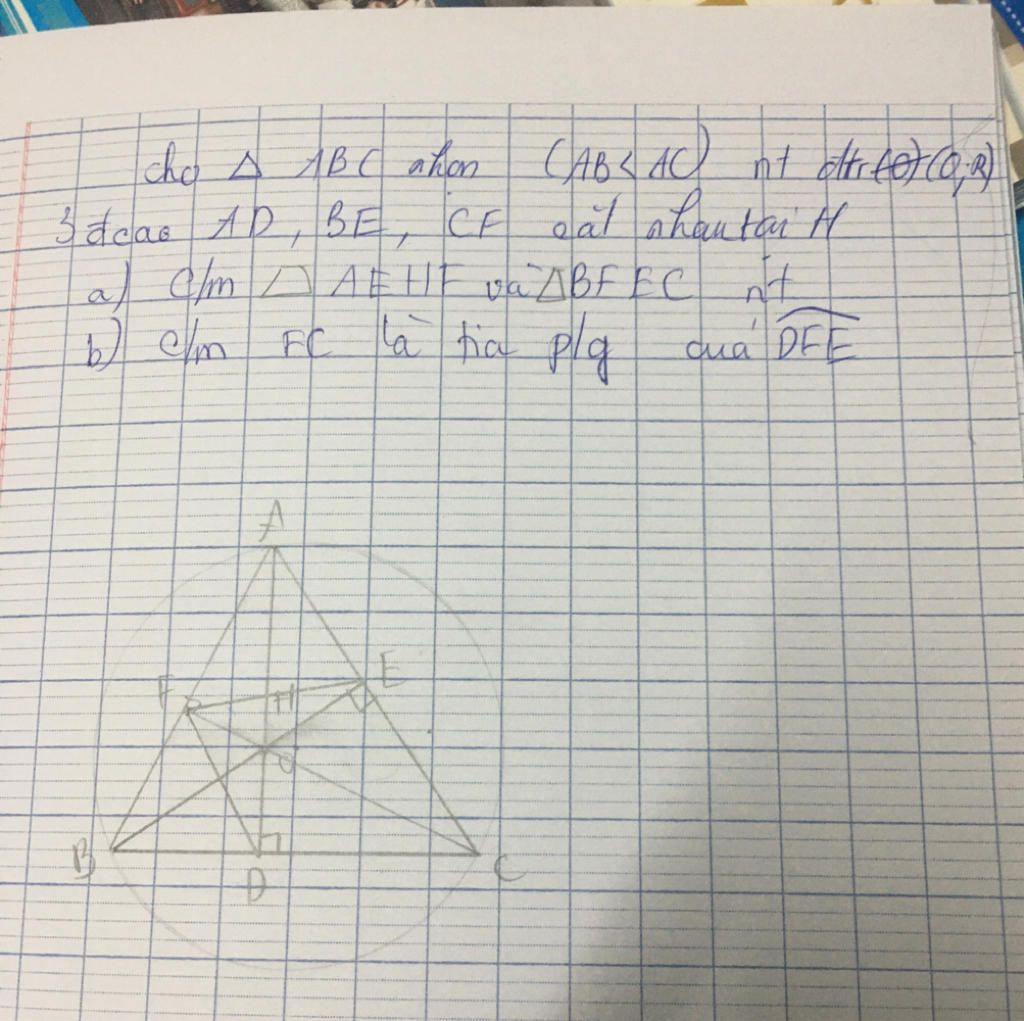 cho △ ABC nhọn (AB < AC) nt đtr (O;R)
3 đcao AD, BE, CF cắt nhau tại H
a) c/m AEHF và BFEC nt
b) c/m FC là tia p/g của DFE
A
F
E
H
O
B
D
C